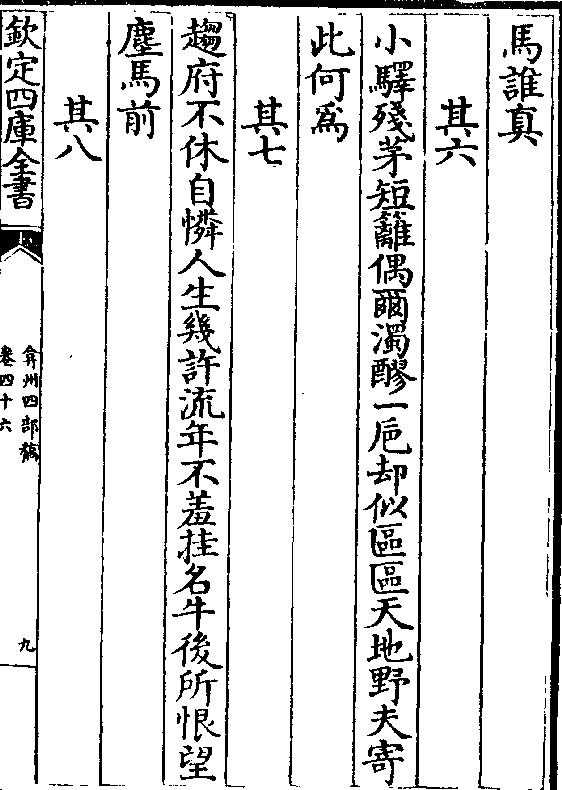 馬誰真
其六
小驛殘茅短籬偶爾濁醪一巵却似區區天地野夫寄
此何爲
其七
趨府不休自憐人生幾許流年不羞挂名牛後所恨望
塵馬前
其八
欽定四庫全書
弇州四部稿
卷四十六
九